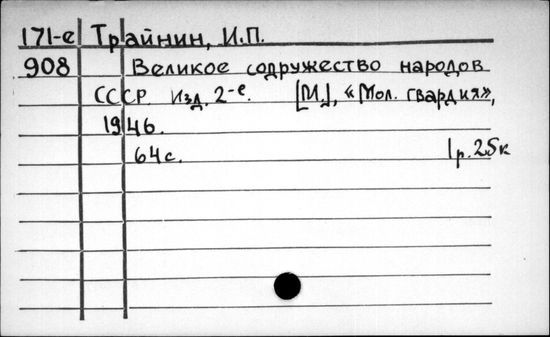 171-е Трайнин, И.П.
908 Великое содружество народов
СССР Изд. 2-е. [М.], «Мол. гвардия»,
1946.
64с. 1р.25к